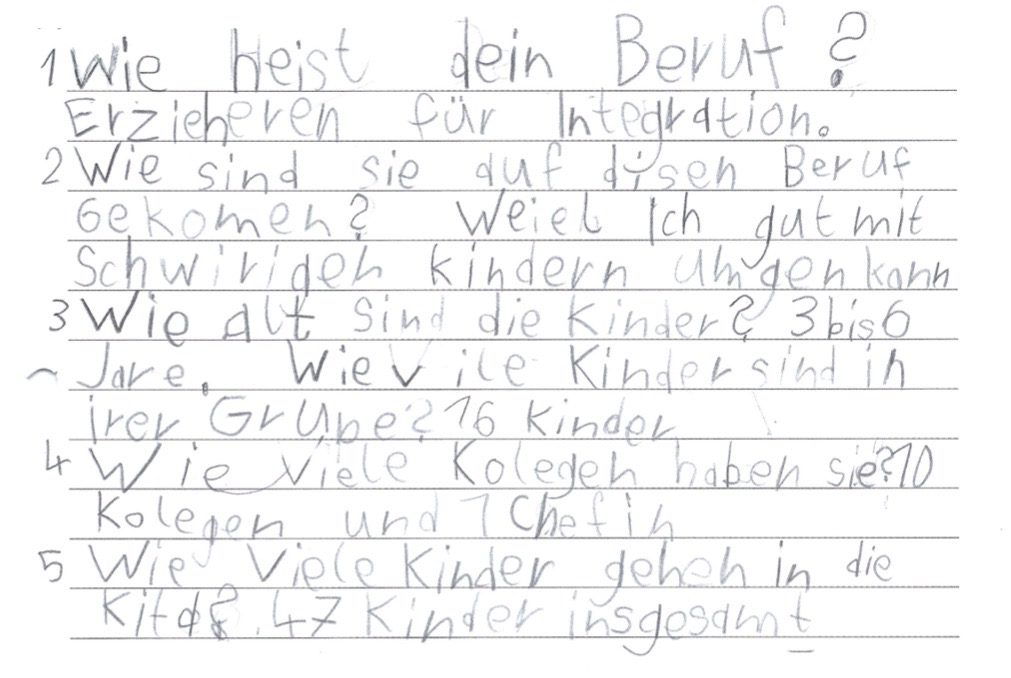 1 Wie heist dein Beruf?
Erzieheren für Integration.
2 Wie sind sie auf disen Beruf
Gekomen? Weiel Ich gut mit
Schwirigen kindern umgen kann
3 Wie alt sind die Kinder? 3 bis 6
Jare. Wie vile Kinder sind in
irer Grupe? 16 Kinder
4 Wie viele Kolegen haben sie? 10
Kolegen und 1 Chefin
5 Wie Viele Kinder gehen in die
Kita? 47 Kinder insgesamt